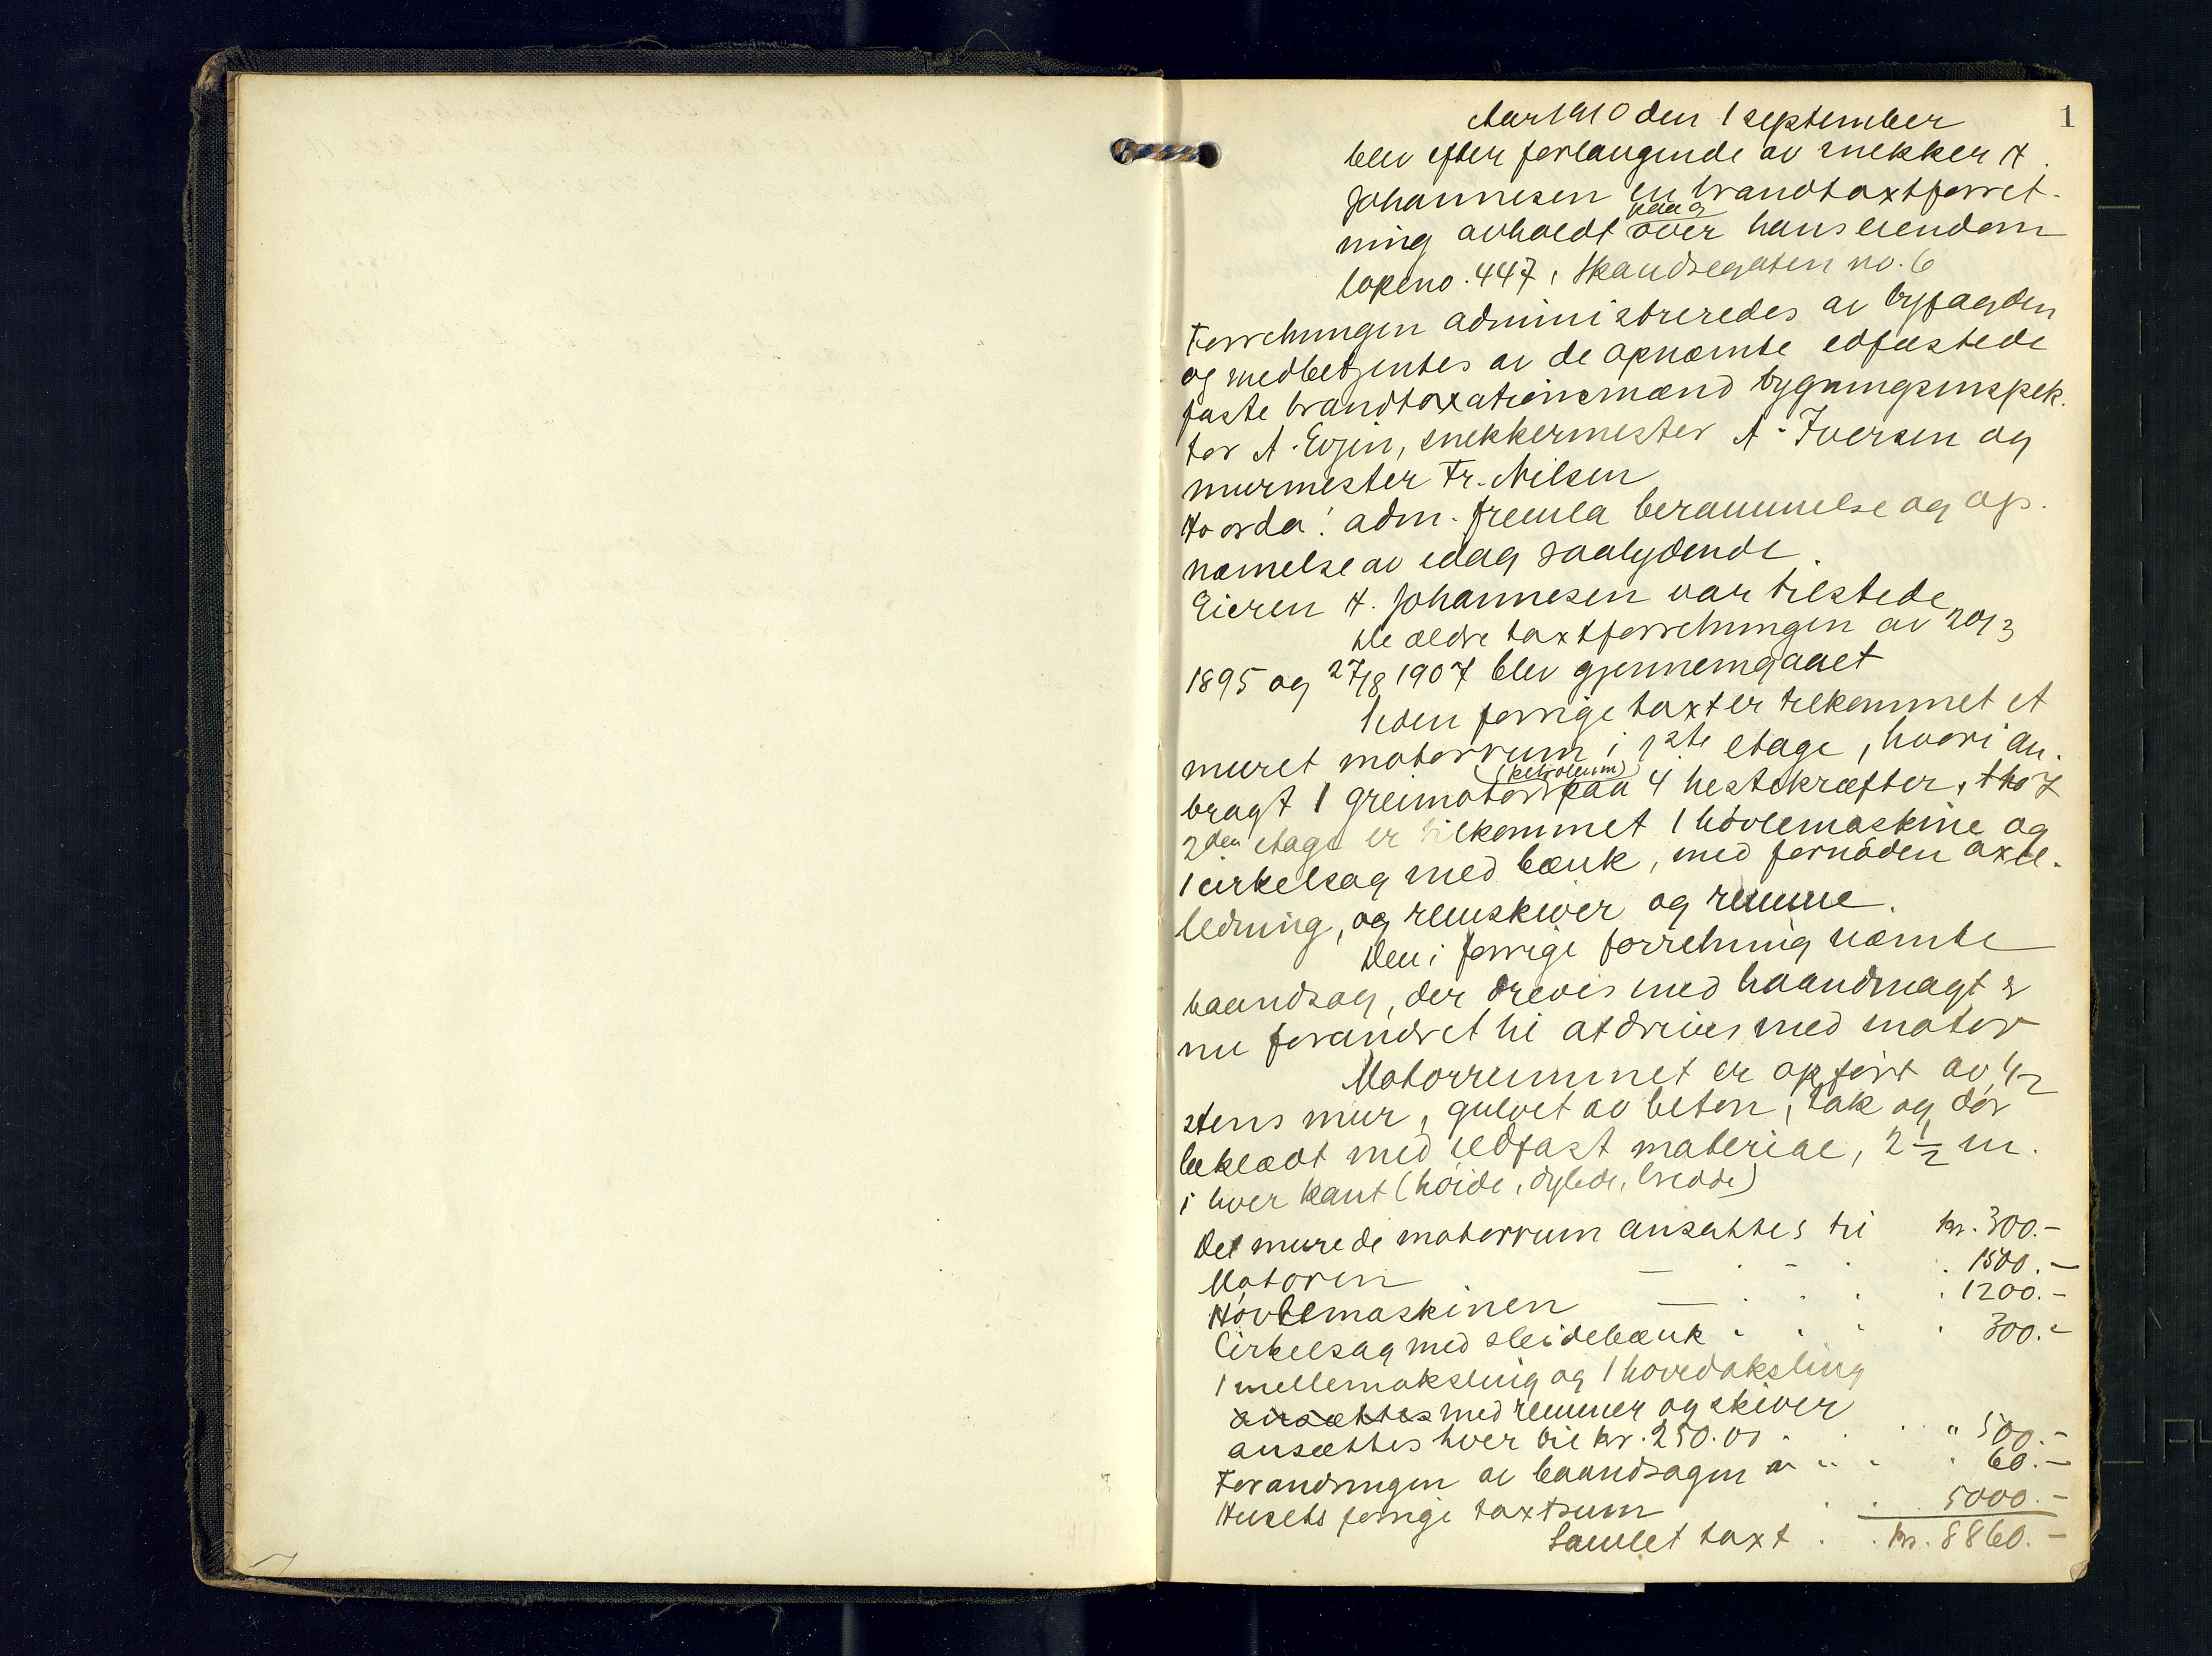 1
Aar 1910 den 1 september
blev efter forlangende av snekker H.
Johannesen en brandtaxtforret-
ning avholdt paa over hans eiendom
løpeno. 447, Skandsegaten no. 6
Forretningen administreredes av byfogden
og medbetjentes av de opnævnte edfæstede
faste brandtaxationsmænd bygningsinspek-
tør A. Evjen, snekkermester A. Iversen og
murmester Fr. Nilsen
Hvorda! adm. fremla berammelse og op-
nævnelse av idag saalydende.
Eieren H. Johannesen var tilstede
De ældre taxtforretningen av 20/3
1895 og 27/8 1907 blev gjennemgaaet
Siden forrige taxt er tilkommet et
muret motorrum i 1ste etage, hvori an-
bragt 1 Greimotor (petroleum) paa 4 hestekræfter, i
2den etage er tilkommet 1 høvlemaskine og
1 cirkelsag med bænk, med fornøden axel-
ledning, og remskiver og remme.
Den i forrige forretning nævnte
baandsag, der dreves med haandmagt er
nu forandret til at drives med motor
Motorrummet er opført av 1/2
stens mur, gulvet av beton, tak og dør
beklædt med ildfast materiale, 2 1/2 m.
i hver kant (høide, dybde, bredde)
Det murede motorrum ansættes til kr. 300.-
Motoren — . - . . 1500.-
Høvlemaskinen — . . . . 1200.-
Cirkelsag med sleidebænk . . . . 300.-
1 mellemaksling og 1 hovedaksling
ansættes med remmer og skiver
ansættes hver til kr. 250.00 . . . " 500.-
Forandringen av baandsagen . . . . 60.-
Husets forrige taxtsum . . 5000.-
Samlet taxt . . kr. 8860.-